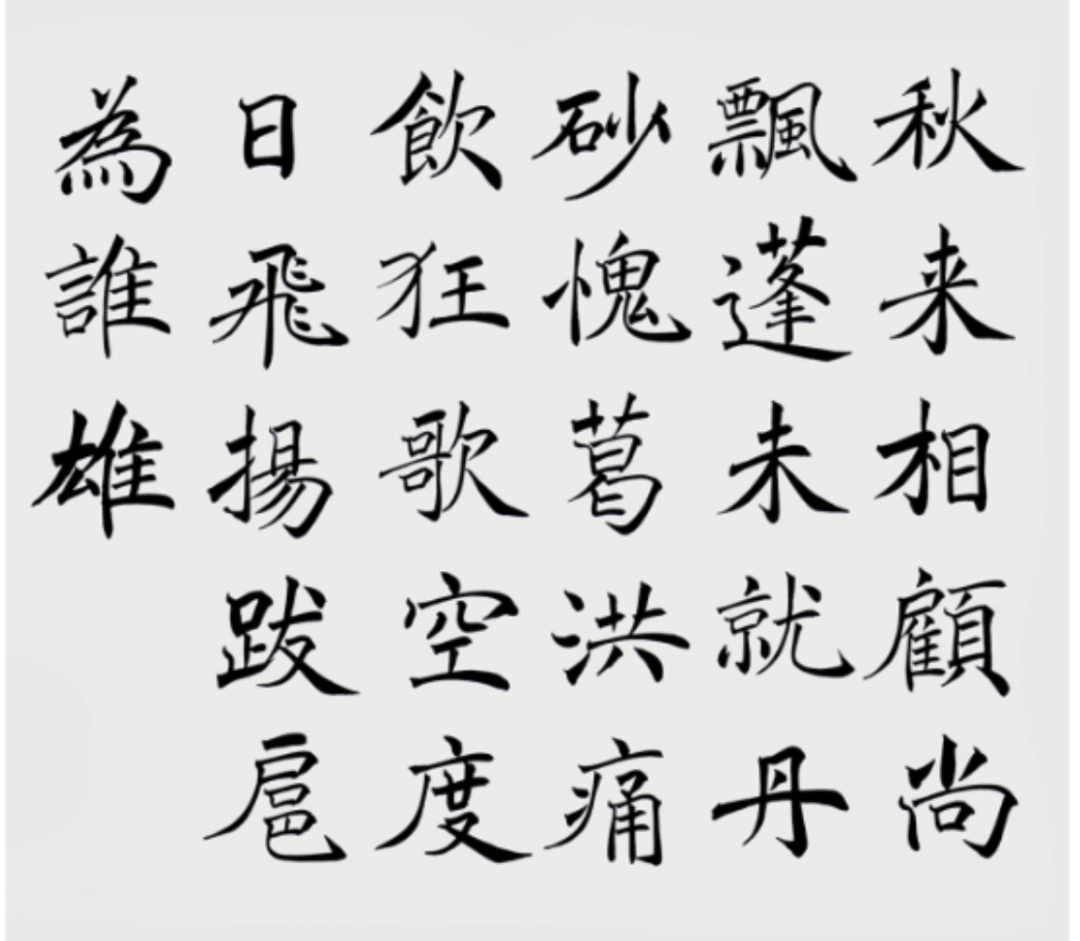 秋来相顧尚
飄蓬未就丹
砂愧葛洪痛
飲狂歌空度
日飛揚跋扈
為誰雄